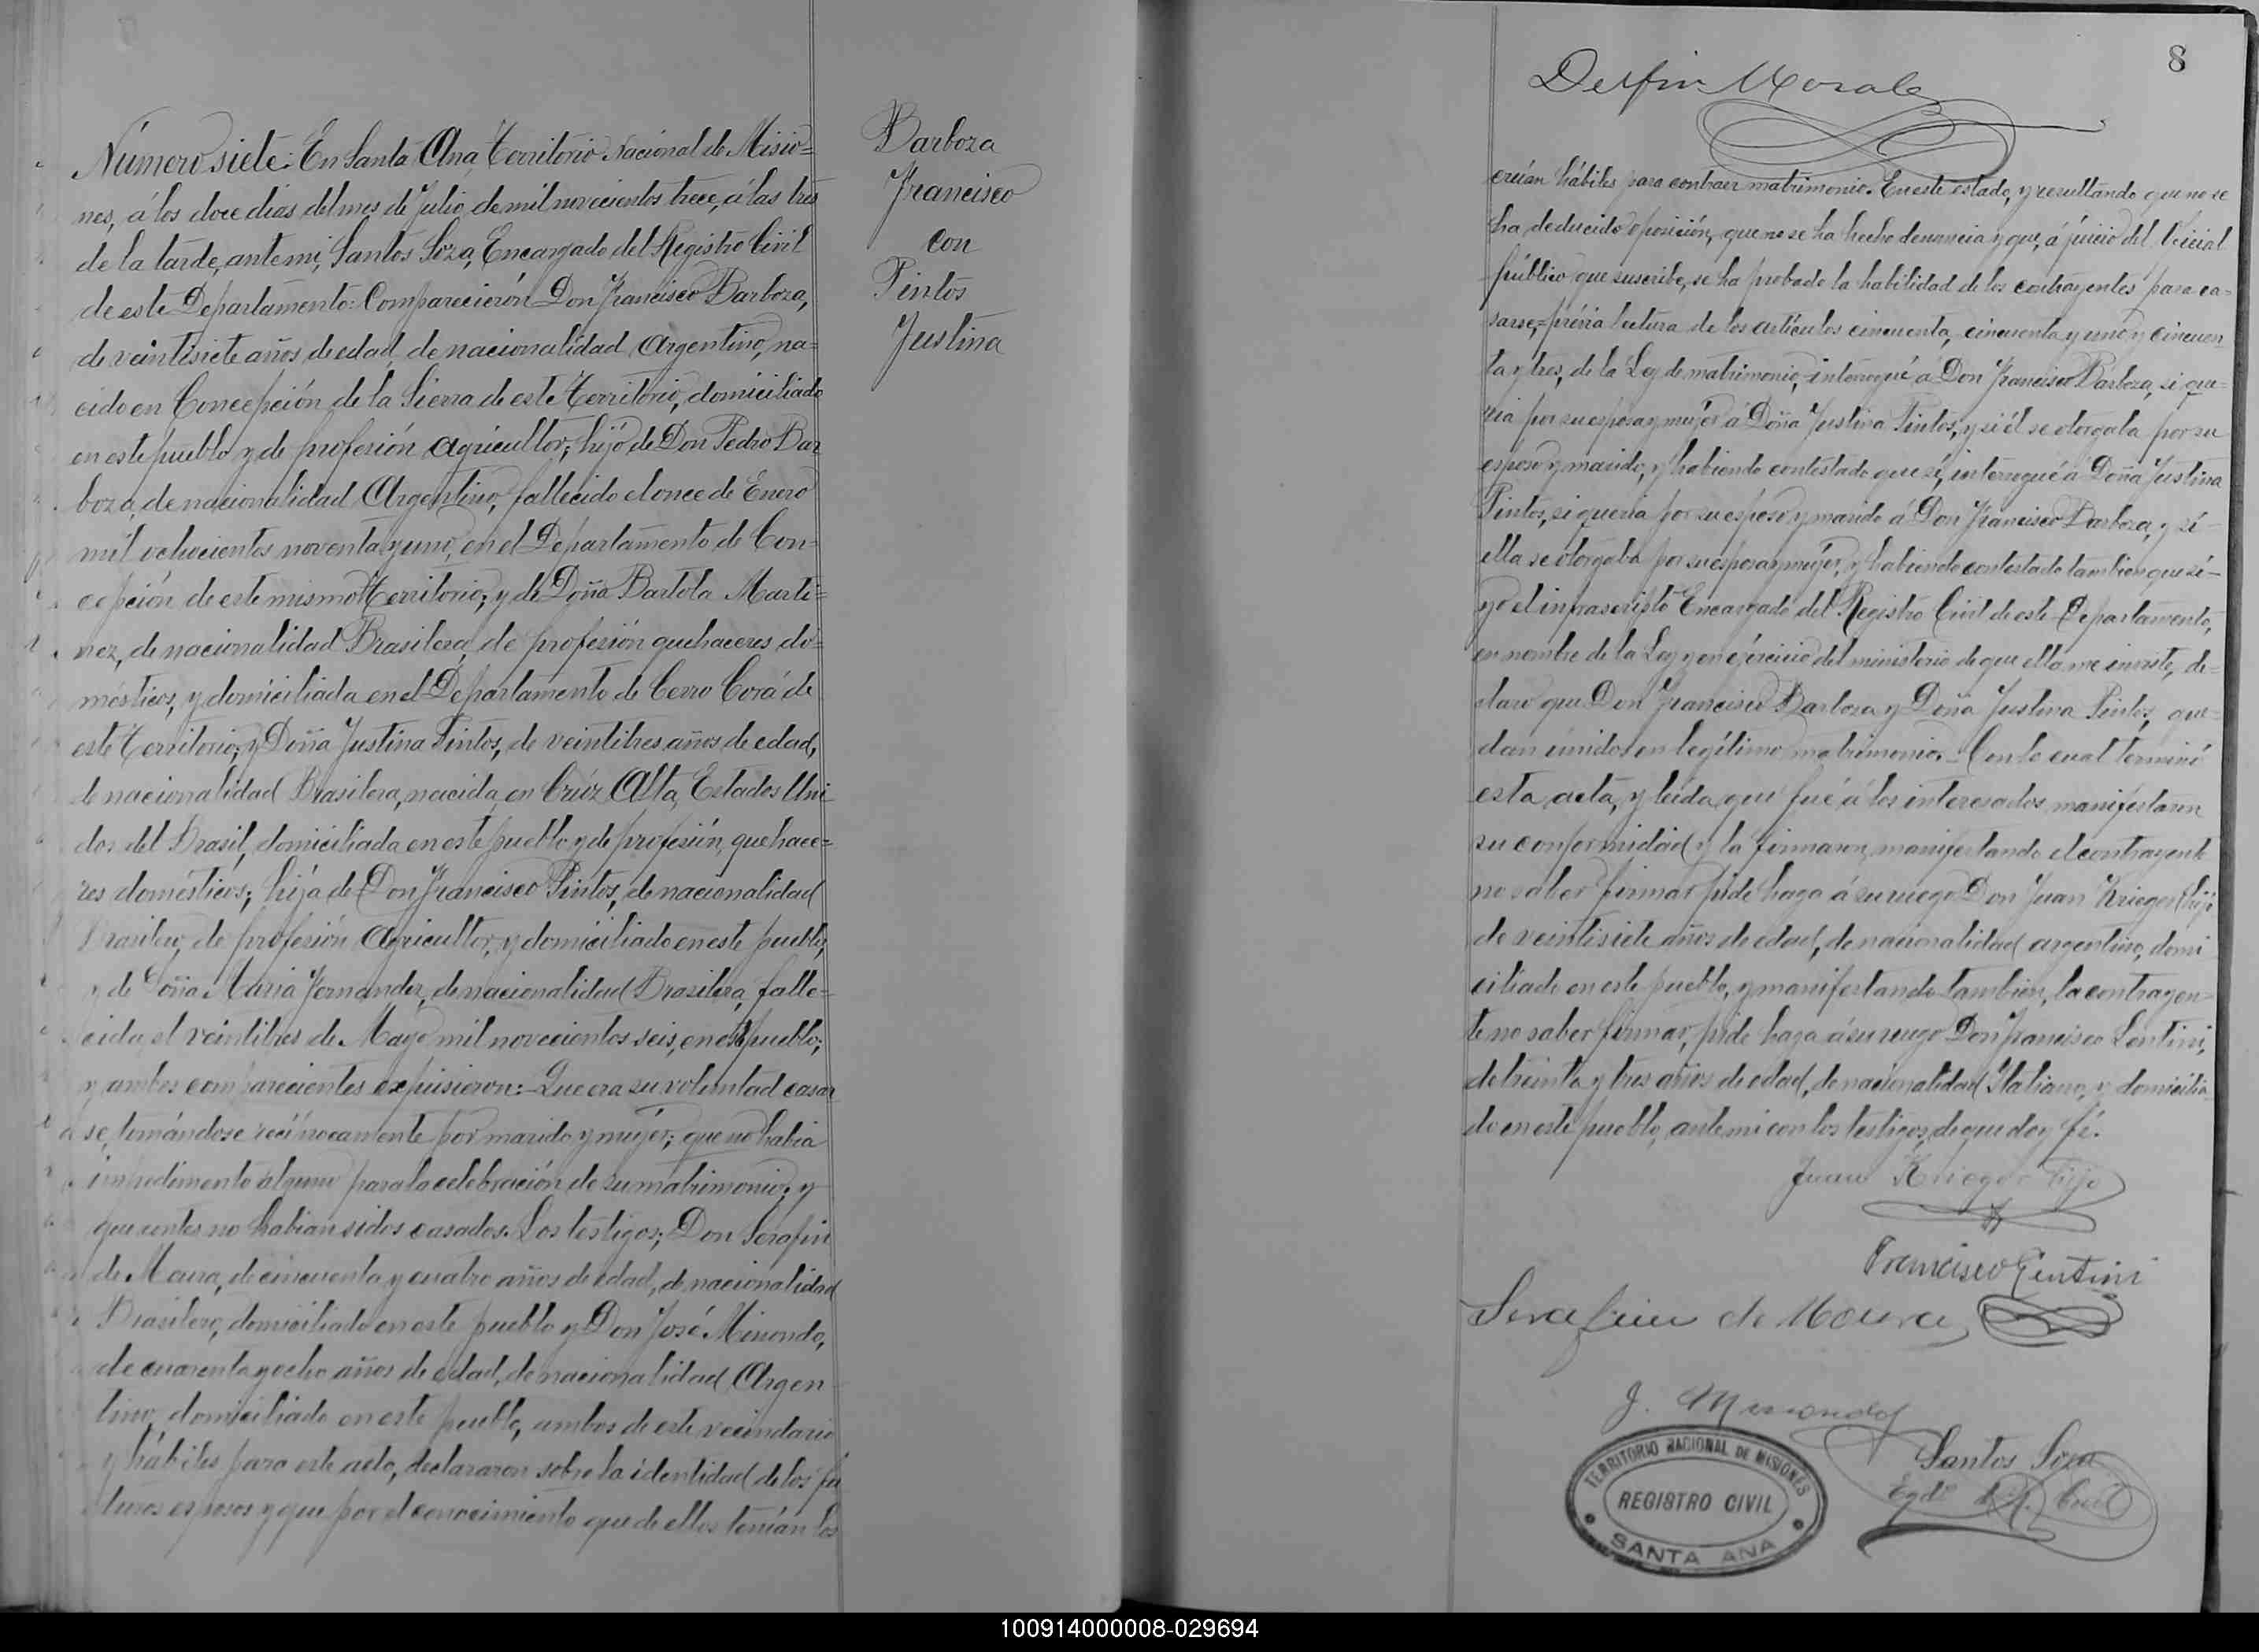 Número siete: En Santa Ana, Territorio Nacional de Misio=
nes, á los doce dias del mes de Julio de mil novecientos trece, á las tres
de la tarde, ante mi, Santos Soza, Encargado del Registro Civil
de este Departamento: Comparecierón Don Francisco Barboza,
de veintisiete años de edad, de nacionalidad Argentino, na=
cido en Concepción de la Sierra de este Territorio, domiciliado
en este pueblo y de profesión Agricultor; hijo de Don Pedro Bar
boza, de nacionalidad Argentino, fallecido el once de Enero
mil ochocientos noventa y uno, en el Departamento de Con=
cepción de este mismo Territorio; y de Doña Bartola Marti=
nez, de nacionalidad Brasilera, de profesión quehaceres do=
mésticos, y domiciliada en el Departamento de Cerro Corá de
este Territorio; y Doña Justina Pintos, de veintitres años de edad,
de nacionalidad Brasilera, nacida en Crúz Alta, Estados Uni
dos del Brasil, domiciliada en este pueblo y de profesión, quehace=
res domésticos; hija de Don Francisco Pintos, de nacionalidad
Brasilero, de profesión Agricultor, y domiciliado en este pueblo,
y de Doña Maria Fernandez, de nacionalidad Brasilera, falle=
cida el veintitres de Mayo mil novecientos seis, en este pueblo;
y ambos comparecientes expusieron: Que era su voluntad casar
se, tomándose recíprocamente por marido y mujer; que no habia
impedimento alguno para la celebración de su matrimonio; y
que antes no habian sidos casados. Los testigos; Don Serafin
de Moura, de cincuenta y cuatro años de edad, de nacionalidad
Brasilero, domiciliado en este pueblo y Don José Minondo,
de cuarenta y ocho años de edad, de nacionalidad Argen
tino, domiciliado en este pueblo, ambos de este vecindario
y hábiles para este acto, declararon sobre la identidad de los fu
turos esposos y que por el conocimiento que de ellos tenían los
Barboza
Francisco
con
Pintos
Justina
8
Delfin Morales
creían hábiles para contraer matrimonio. En este estado, y resultando que no se
ha deducido oposición, que no se ha hecho denuncia y que, á juicio del Oficial
público que suscribe, se ha probado la habilidad de los contrayentes para ca=
sarse,= prévia lectura de los artículos cincuenta, cincuenta y uno y cincuen
ta y tres, de la Ley de matrimonio, interrogué á Don Francisco Barboza, si que=
ria por su esposa y mujer á Doña Justina Pintos, y si él se otorgaba por su
esposo y marido, y habiendo contestado que sí, interrogué á Doña Justina
Pintos, si queria por su esposo y marido á Don Francisco Barboza, y sí
ella se otorgaba por su esposa y mujer, y habiendo contestado tambien que sí—
yo el infrascripto Encargado del Registro Civil de este Departamento,
en nombre de la Ley y en ejercicio del ministerio de que ella me inviste, de-
claro que Don Francisco Barboza y Doña Justina Pintos, que=
dan unidos en legítimo matrimonio. Con lo cual terminó
esta acta, y leída que fué á los interesados manifestaron
su conformidad y la firmaron, manifestando el contrayente
no saber firmar pide haga á su ruego Don Juan Krieger (hijo
de veintisiete años de edad, de nacionalidad argentino, domi
ciliado en este pueblo, y manifestando tambien, la contrayen
te no saber firmar, pide haga á su ruego Don Francisco Lentini,
de treinta y tres años de edad, de nacionalidad Italiano, y domicilia
do en este pueblo, ante mi con los testigos, de que doy fé.
Juan Krieger Hijo
Francisco Lentini
Serafim de Moura
J. Minondo
Santos Soza
Egdo del R. Civil
TERRITORIO NACIONAL DE MISIONES
REGISTRO CIVIL
SANTA ANA
100914000008-029694